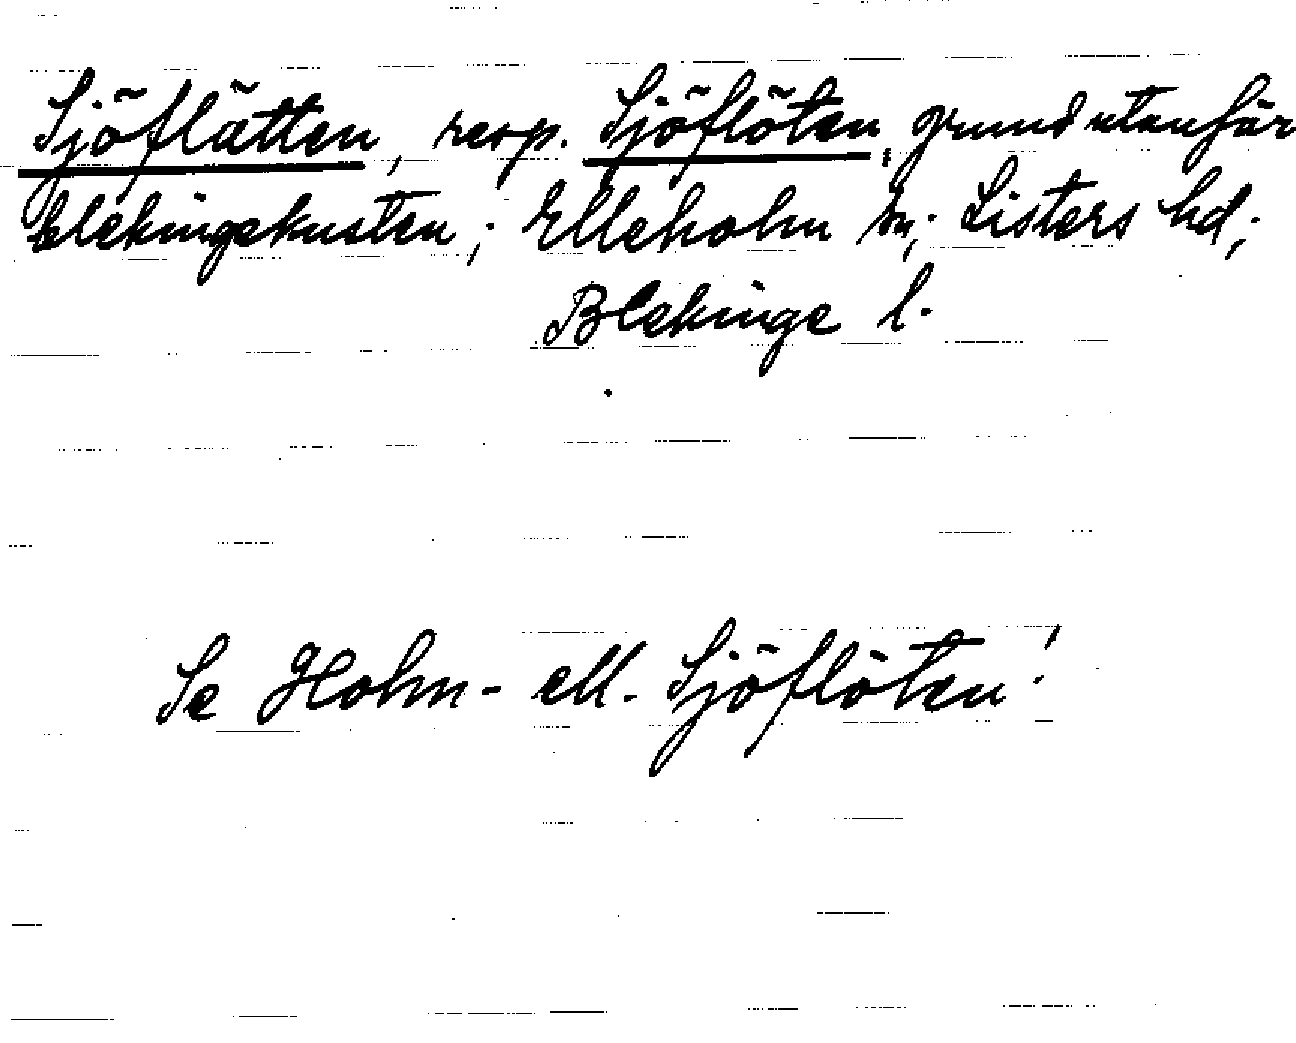 Sjöflätten, resp. Sjöflöten, grund utanför
blekingekusten; Elleholm sn; Listers hd;
Blekinge l.
Se Holm- ell. Sjöflöten!